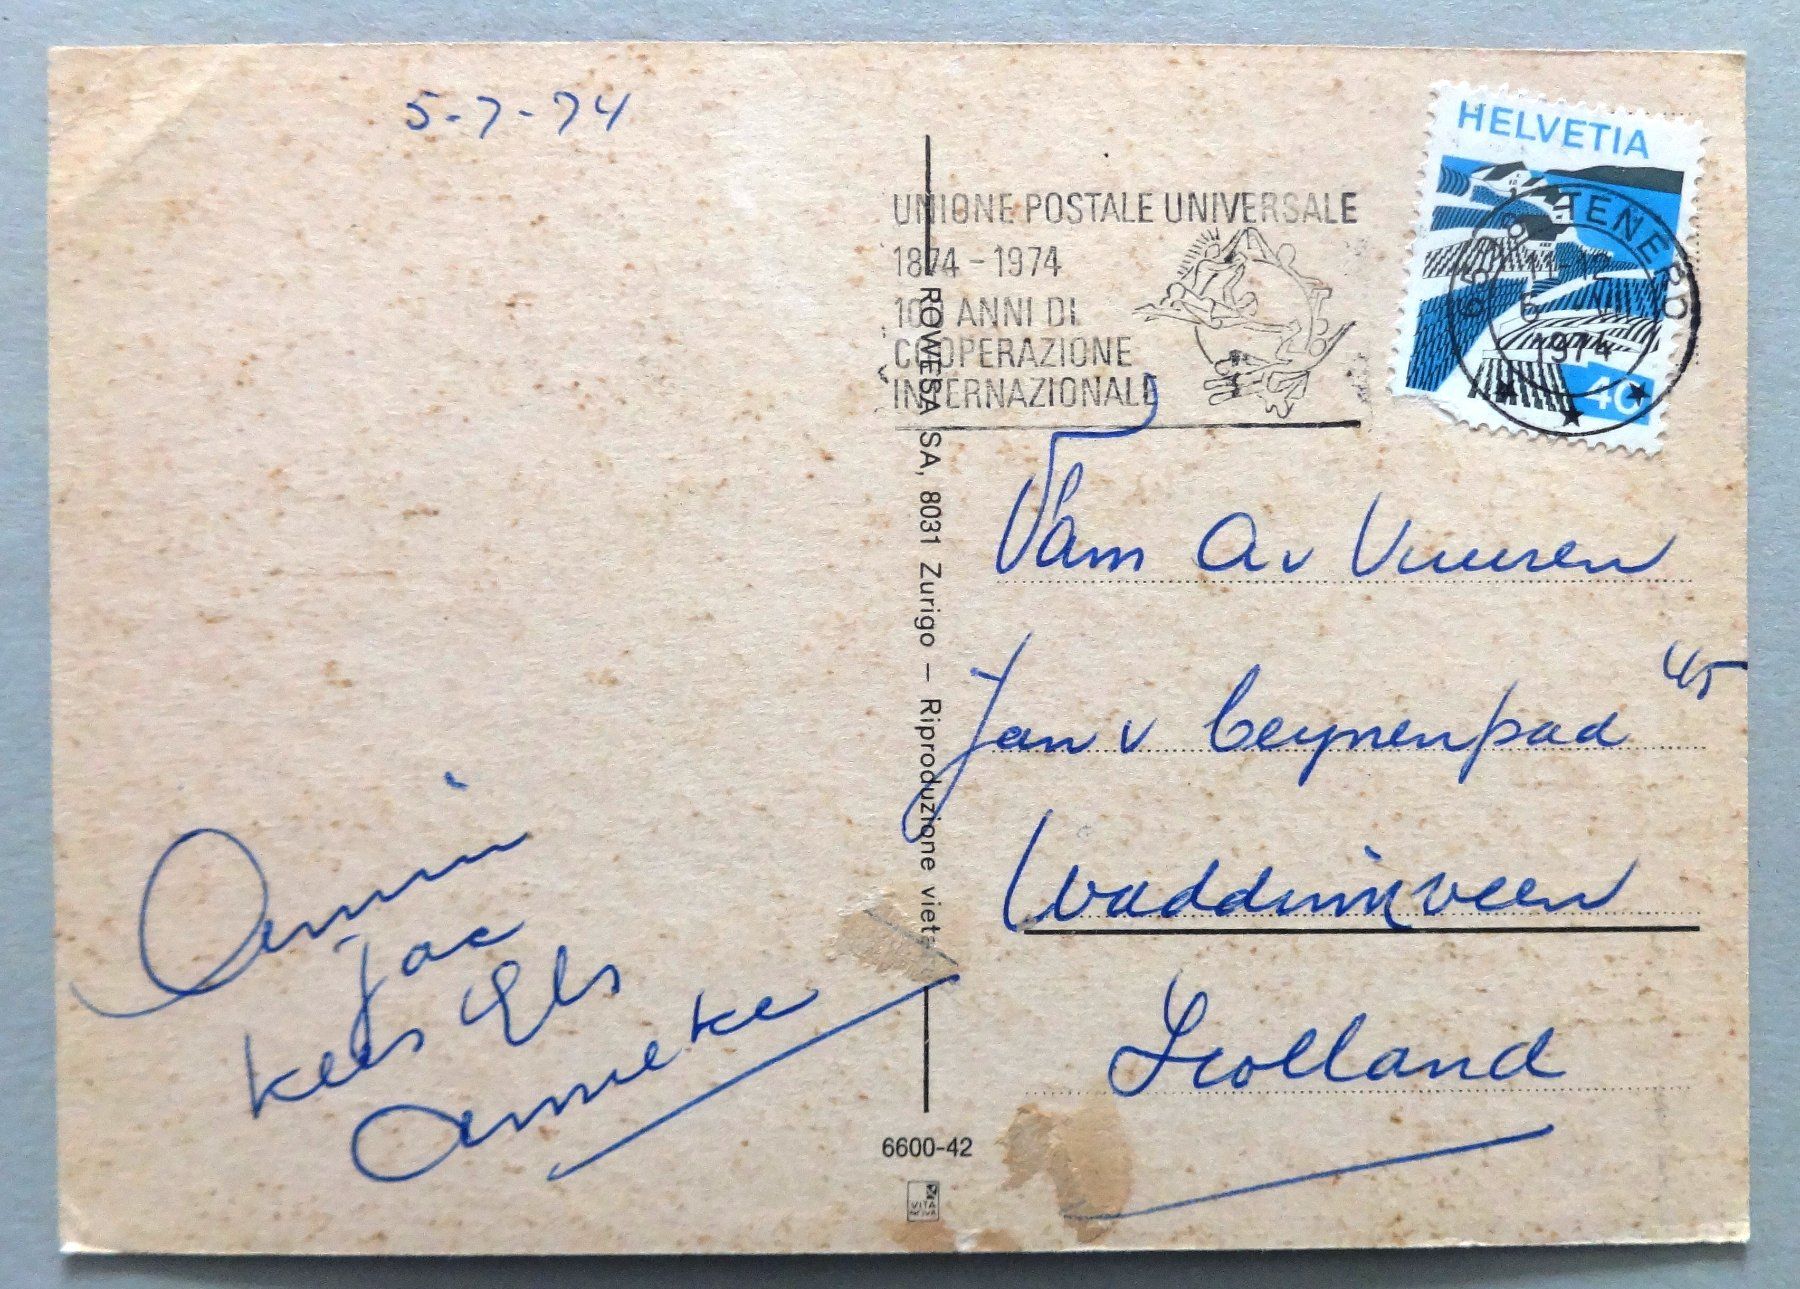 5-7-74
Annie
Jac
Kees Els
Anneke
UNIONE POSTALE UNIVERSALE
1874-1974
100 ANNI DI
COOPERAZIONE
INTERNAZIONALE
HELVETIA
40
TENERO
11-12
1974
ROWESA SA, 8031 Zurigo — Riproduzione vieta
Fam A v Vuuren
Jan v Beynenpad 45
Waddinxveen
Holland
6600-42
VITA NOVA